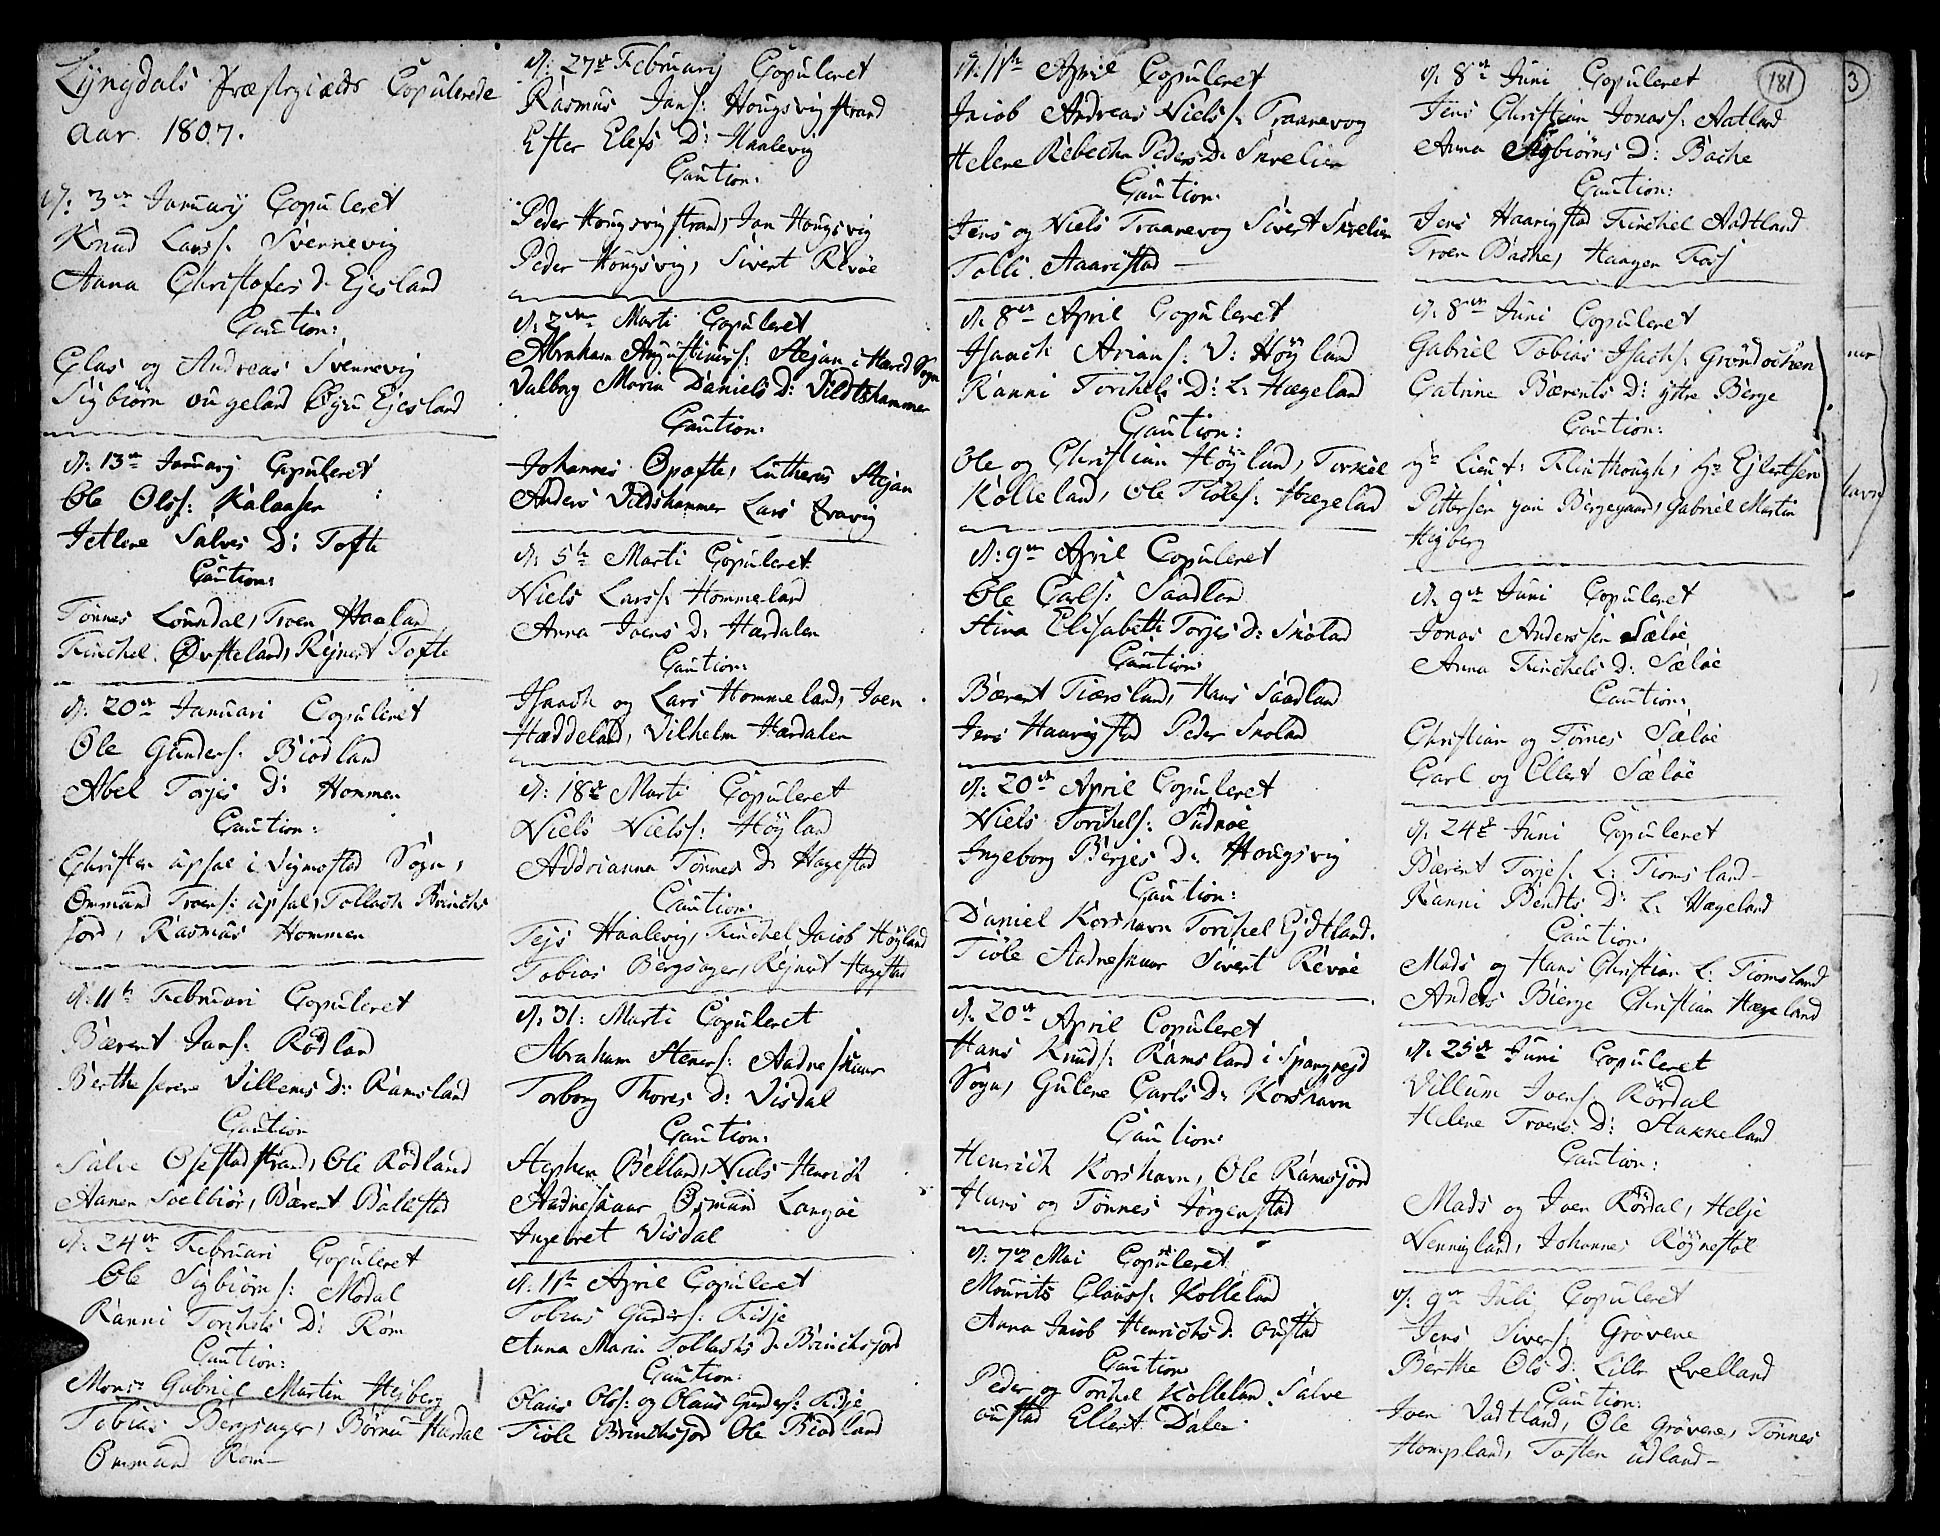 Lyngdals Præstegiælds Copulerede
Aar 1807.
d: 3de Januarij Copuleret
Knud Larss: Svennevig
Anna Christofers D. Ejesland
Caution:
Clas og Andreas Svennevig
Sigbiørn ougeland Ejesland
d: 13de Januarij Copuleret
Ole Olss: Kalaasen
Jetlene Salves D: Tofte
Caution:
Tønnes Løundal, Troen Haaland
Tinchel Øvfteland, Rejnert Tofte
d: 20de Januari Copuleret
Ole Gunders: Biødland
Abel Torjes D: Hommen
Caution:
Christen upsal i Vigmostad Sogn,
Ommund Troens: upsal, Tollach Brinchs
fjord, Rasmus Hommen
d: 11te Februari Copuleret
Bærent Jans: Rødland
Berthe Serene Villems D: Ramsland
Caution
Salve Osestadstrand, Ole Rødland
Aanen Soelbiør, Bærent Ballestad
d: 24de Februari Copuleret
Ole Sigbiørns: Modal
Ranni Torchels D: Rom
Caution:
Monsr Gabriel Martin Hejberg
Tobias Bergsager, Børni Hardal
Ommund Rom
d: 27de Februarij Copuleret
Rasmus Jans: Hougsvigstrand
Ester Elefs D: Haalevig
Caution:
Peder Hougsvigstrand, Jan Hougsvig
Peder Hougsvig, Sivert Revøe
d: 2den Marti Copuleret
Abraham Augustinuss: Stejan i Harsd Sogn
Valborg Maria Daniels D: Vildtshammer
Caution:
Johannes Opofte, Lutherus Stejan
Anders Vildshammer Lars
d: 5te Marti Copuleret
Niels Larss: Hommeland
Anna Joens D: Hardalen
Caution:
Isaach og Lars Hommeland, Joen
Hæddeland, Vilhelm Hardalen
d: 18de Marti Copuleret
Niels Nielss: Høyland
Addrianna Tønnes D: Hagestad
Caution:
Tejs Haalevig, Tinchel Jacob Høyland
Tobias Bergsager, Rejnert Hagestad
d: 31: Marti Copuleret
Abraham Steners: Aadneskaar
Torborg Thores D: Visdal
Caution:
Stephen Belland, Niels Henrich
Aadneskaar Osmund Langøe
Ingebret Visdal
d: 11te April Copuleret
Tobias Gunders: Fidje
Anna Maria Tollachs D. Brinchsfjord
Caution:
Olaus Ols: og Olaus Gunders: Fidje
Tiøle Brinchsfjord Ole Biødland
d: 11te April Copuleret
Jacob Andreas Niels s: Traanevog
Helene Rebecha Peders D: Skrelien
Caution:
Jens og Niels Traanevog Sivert Skrelien
Tolli Haaristad
d: 8de April Copuleret
Isaach Arians: V: Høyland
Ranni Torchels D: L: Hægeland
Caution:
Ole og Christian Høyland, Torkel
Kolleland, Ole Tiøles: Hægeland
d: 9de April Copuleret
Ole Carls: Saadland
Stina Elisabeth Torjes D: Skoland
Caution:
Bærent Tiørsland, Hans Saadland
Jens Haavigstad Peder Skoland
d: 20de April Copuleret
Niels Torchels: Sudnøe
Ingeborg Berjes D: Hougsvig
Caution:
Daniel Korshavn Torchel Ejdtland.
Tiøle Aadneskaar Sivert Revøe
d: 20de April Copuleret
Hans Knuds: Ramsland i Spangrejd
Sogn, Gulene Carls D: Korshavn
Caution:
Henrich Korshavn, Ole Ramsfjord
Hans og Tønnes Jørgenstad
d: 7de Mai Copuleret
Mourits Clauss: Kolleland
Anna Jacob Henrichs D: oustad
Caution
Peder og Torchel Kolleland, Salve
oustad Ellert Dalen
181
d: 8de Juni Copuleret
Jens Christian Jonass: Aatland
Anna Sigbiørns D: Bache
Caution:
Jens Haarigstad Tinchel Aadtland
Troen Bache, Haagen Foss
d: 8de Juni Copuleret
Gabriel Tobias Isachs: Grøndochen
Catrine Bærents D: yttre Berge
Caution:
Hr Lieut: Flinthough, Hr Ejlertsen
Pittersen paa Bergegaard, Gabriel Martin
Hejberg
d: 9de Juni Copuleret
Jonas Anderssen Sæløe
Anna Tinchels D: Sæløe
Caution:
Christian og Tønnes Sæløe
Carl og Ellert Sæløe
d: 24de Juni Copuleret
Bærent Torjes: L: Tiomsland
Ranni Bendts D: L: Hægeland
Caution:
Mads og Hans Christian L: Tiomsland
Anders Bierge Christian Hægeland
d: 25de Juni Copuleret
Villum Joens: Rørdal
Helene Troens D: Stakkeland
Caution:
Mads og Joen Rørdal, Helje
Vennigland, Johannes Røynestøl
d: 9de Juli Copuleret
Jens Sivers: Grøvene
Berthe Ols D: Lille Qvelland
Caution:
Joen Vadtland, Ole Grøvene, Tønnes
Hompland, Tosten udland
3
havn